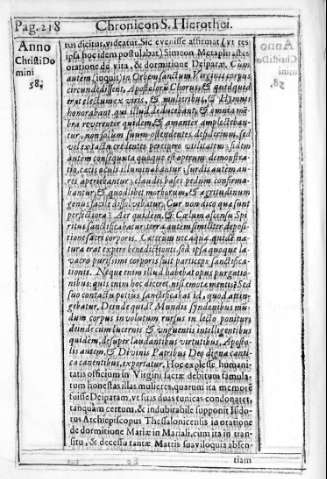 Pag. 218 Chronicon S. Hierothei.
Anno
Christi Do
mini
58.
tus dicitur, videatur. Sic evenisse affirmat (ut res
ipsa hoc idem postulabat) Simeon Metaphrastes
oratione de vita, & dormitione Deiparæ. Cum
autem (inquit) in Orbem sanctum Virginis corpus
circumdedissent, Apostolorū Chorus, & quidquid
erat electum ex viris, & mulieribus, & Hymnis
honorabant qui illud deducebant, & omnia
bra reverenter quidem, & amanter amplectebā-
tur, non solum suum ostendentes desiderium, sed
vel ex tactu credentes percipere utilitatem: fidem
autem consequuta quoque est operum demonstra-
tio, cæcis oculi illuminabantur; surdis autem au-
res aperiebantur; claudis bases pedum confirma-
bantur, & quodlibet morborum, & ægritudinum
genus facile dissolvebatur. Cur non dico quæ sunt
Aer quidem, & Cælum ascensu Spi-
ritus sanctificabatur, terra autem similiter deposi-
tione sacri corporis. Cæterum nec aquæ quidem na-
tura erat expers benedictionis, sed ipsa quoque la-
vacro purissimi corporis fuit particeps sanctifica-
tionis. Neque enim illud habebat opus purgatio-
nibus: quis enim hoc diceret, nisi emotæ mentis? Sed
suo contactu potius sanctificabat id, quod attin-
gebatur. Deinde quid? Mundis syndonibus mū-
dum corpus involutum rursus in lecto ponitur:
deinde cum lucernis & unguentis intelligentibus
quidem, desuper laudantibus virtutibus, Aposto-
lis autem, & Divinis Patribus Deo digna canti-
ca canentibus, exportatur. Hoc explesse humani-
tatis officium in Virgini sacræ debitum famula-
tum honestas illas mulieres, quarum ita memorē
fuisse Deiparam, ut suis duas tunicas condonaret,
tanquam certum, & indubitabile supponit Isido-
rus Archiepiscopus Thessalonicensis in oratione
de dormitione Mariæ in Mariali, cum ita in tran-
situ, & decessu tantæ Matris suaviloquia absen-
tiam